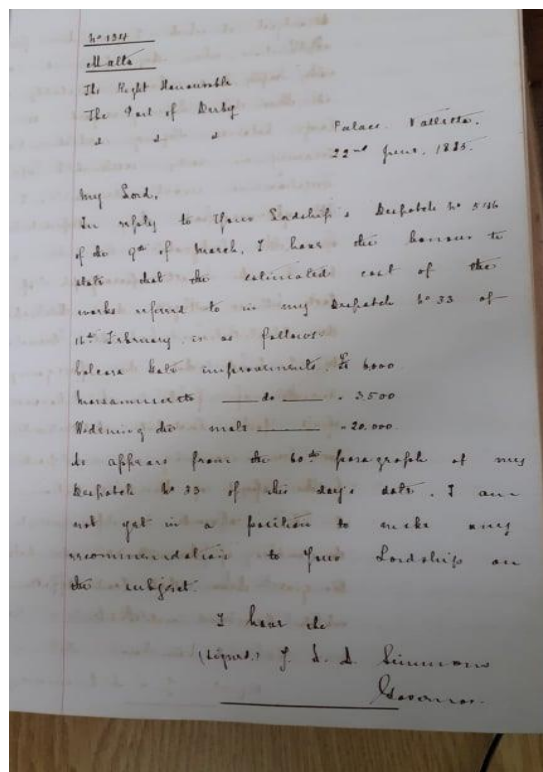 No 134
Malta
The Right Honourable
The Earl of Derby
Palace. Valletta.
22nd June. 1885.
My Lord,
In reply to Your Lordship's Despatch No
of the 9th of March, I have the honour to
state that the estimated cost of the
works referred to in my Despatch No 33 of
February is as follows
Gate improvements £ 6,000
do 3,500
Widening the 20.000
As appears from the 60th paragraph of my
Despatch No 33 of this day's date. I am
not yet in a position to make any
recommendation to Your Lordship on
the subject.
I have etc
(Signed.) J. L. A. Simmons
Governor.